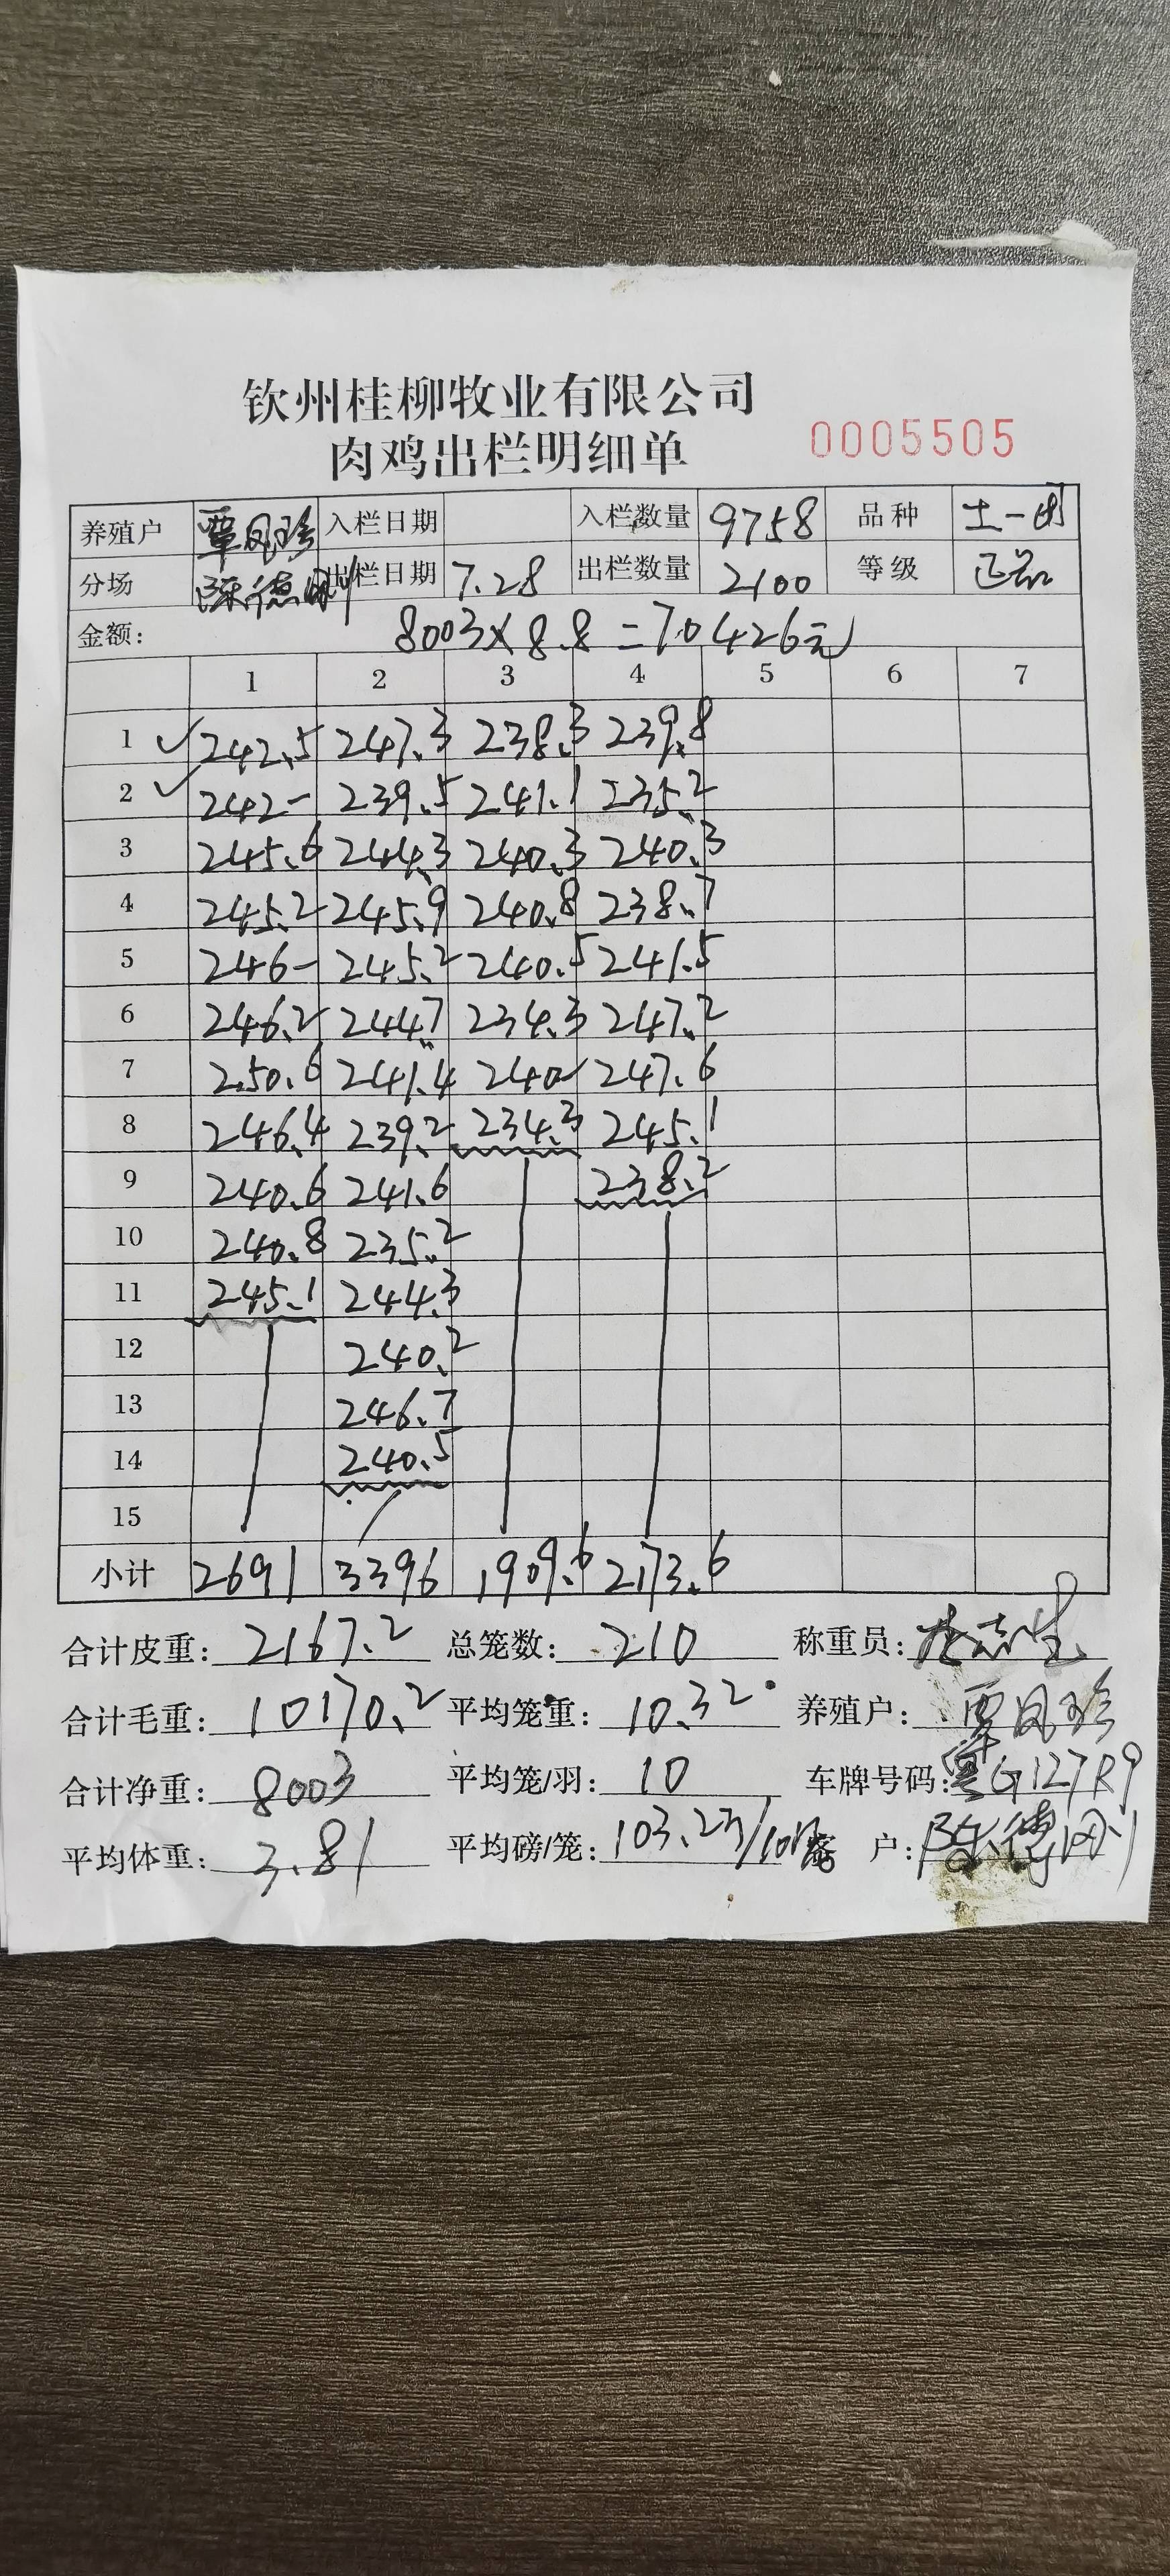 钦州桂柳牧业有限公司
肉鸡出栏明细单 0005505
养殖户 覃凤珍 入栏日期 入栏数量 9758 品种 土一
分场 陈德刚 出栏日期 7.28 出栏数量 2100 等级 正品
金额: 8003×8.8=70426元
1 2 3 4 5 6 7
1 ✓ 242.5 247.3 238.3 239.8
2 ✓ 242- 239.5 241.1 235.2
3 245.6 244.3 240.3 240.3
4 245.2 245.9 240.8 238.7
5 246- 245.2 240.5 241.5
6 246.2 244.7 234.3 247.2
7 250.6 241.4 240- 247.6
8 246.4 239.2 234.3 245.1
9 240.6 241.6 238.2
10 240.8 235.2
11 245.1 244.3
12 240.2
13 246.7
14 240.5
15
小计 2691 3396 1909.6 2173.6
合计皮重: 2167.2 总笼数: 210 称重员:
合计毛重: 10170.2 平均笼重: 10.32 养殖户: 覃凤珍
合计净重: 8003 平均笼/羽: 10 车牌号码: 粤G127R9
平均体重: 3.81 平均磅/笼: 103.2斤/10 客户: 陈德刚